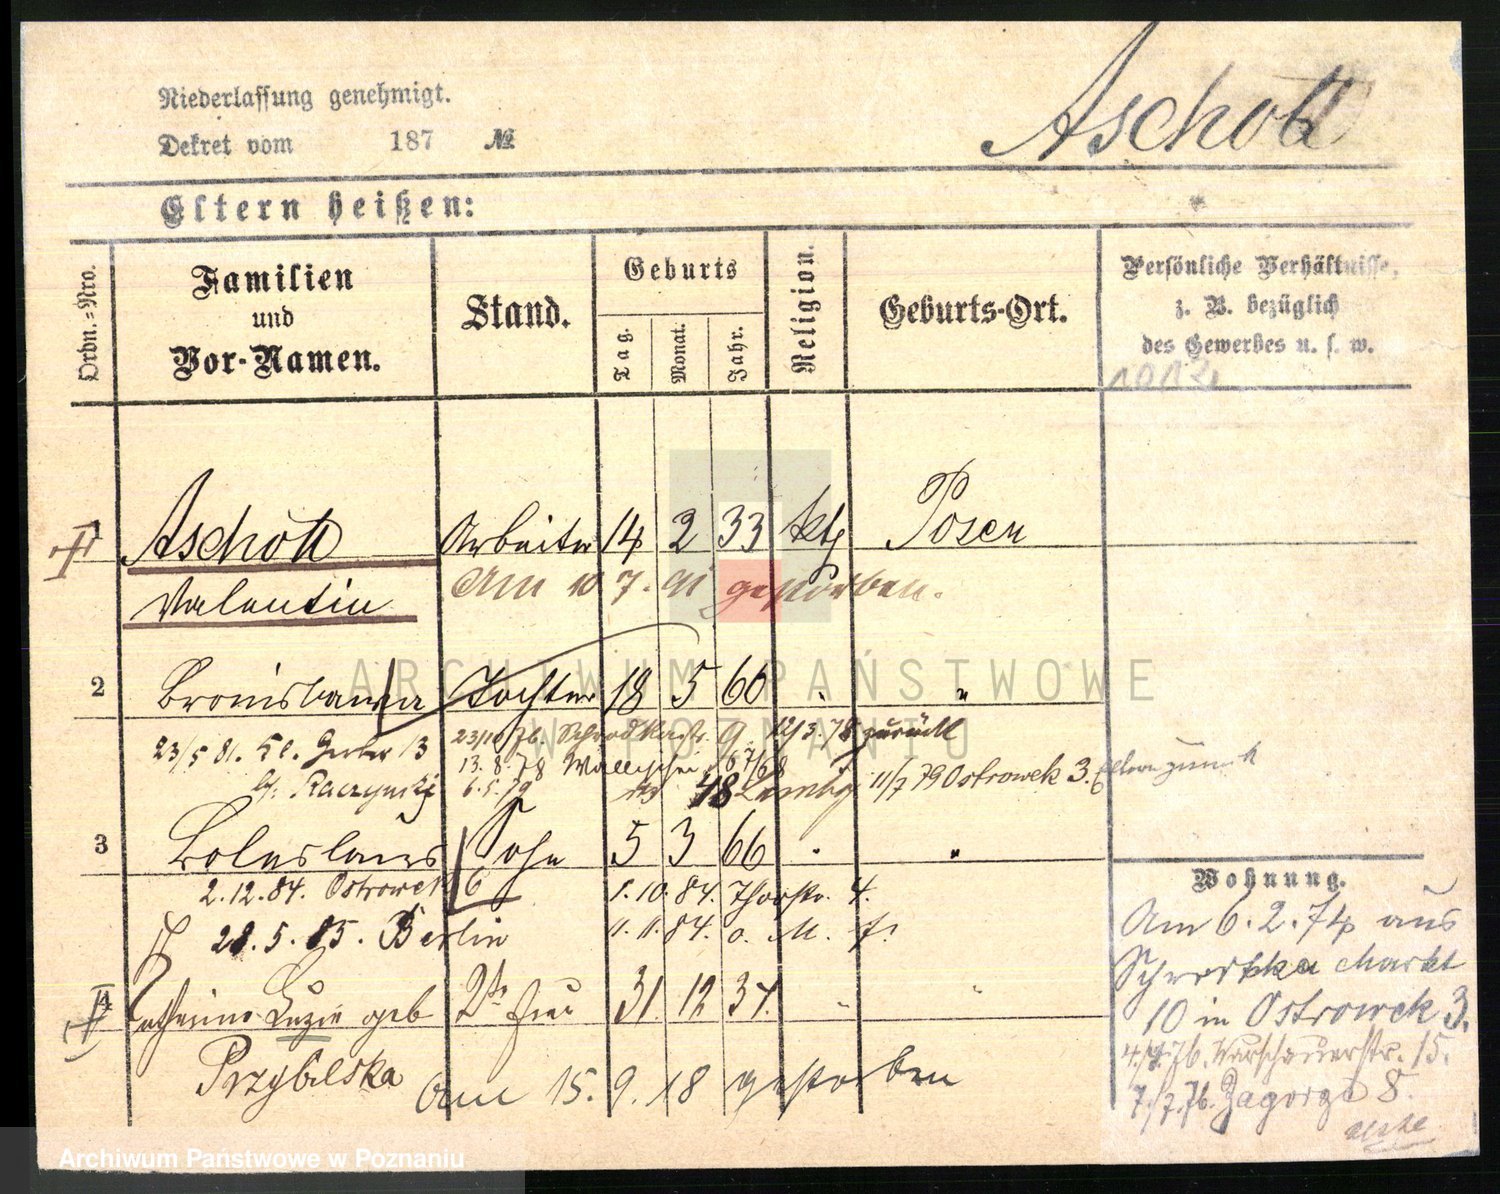 Niederlassung genehmigt.
Dekret vom 187 №
Aschott
Eltern heißen:
Ordn.=Nro.
Familien
und
Vor-Namen.
Stand.
Geburts
Tag.
Monat.
Jahr.
Religion.
Geburts-Ort.
Persönliche Verhältnisse,
z. B. bezüglich
des Gewerbes u. s. w.
1 Aschott Arbeiter 14 2 33 kth Posen
Valentin
Am 10 7. 91 gestorben.
2 Bronislawa Tochter 18 5 66 " "
23/5 81. Kl. Gerber 13
23/10 76. 9. 12/3.78 zurück
13.8.78 Wallischei
11/7 79 Ostrowek 3.
3 Boleslaus Sohn 5 3 66 " "
2.12.84. Ostrowek 6
1.10.84. Thorstr. 4.
28.5.85. Berlin
11.11.84. o. M. f.
4 Catharine Luzie geb 2te Frau 31. 12 34. " "
Przybilska
Am 15. 9. 18 gestorben
Wohnung.
Am 6.2.74 aus
Schrodka Markt
10 in Ostrowek 3.
76. Warschauerstr. 15.
7./7.76. Zagorze 8.
ARCHIWUM PAŃSTWOWE
W POZNANIU
Archiwum Państwowe w Poznaniu